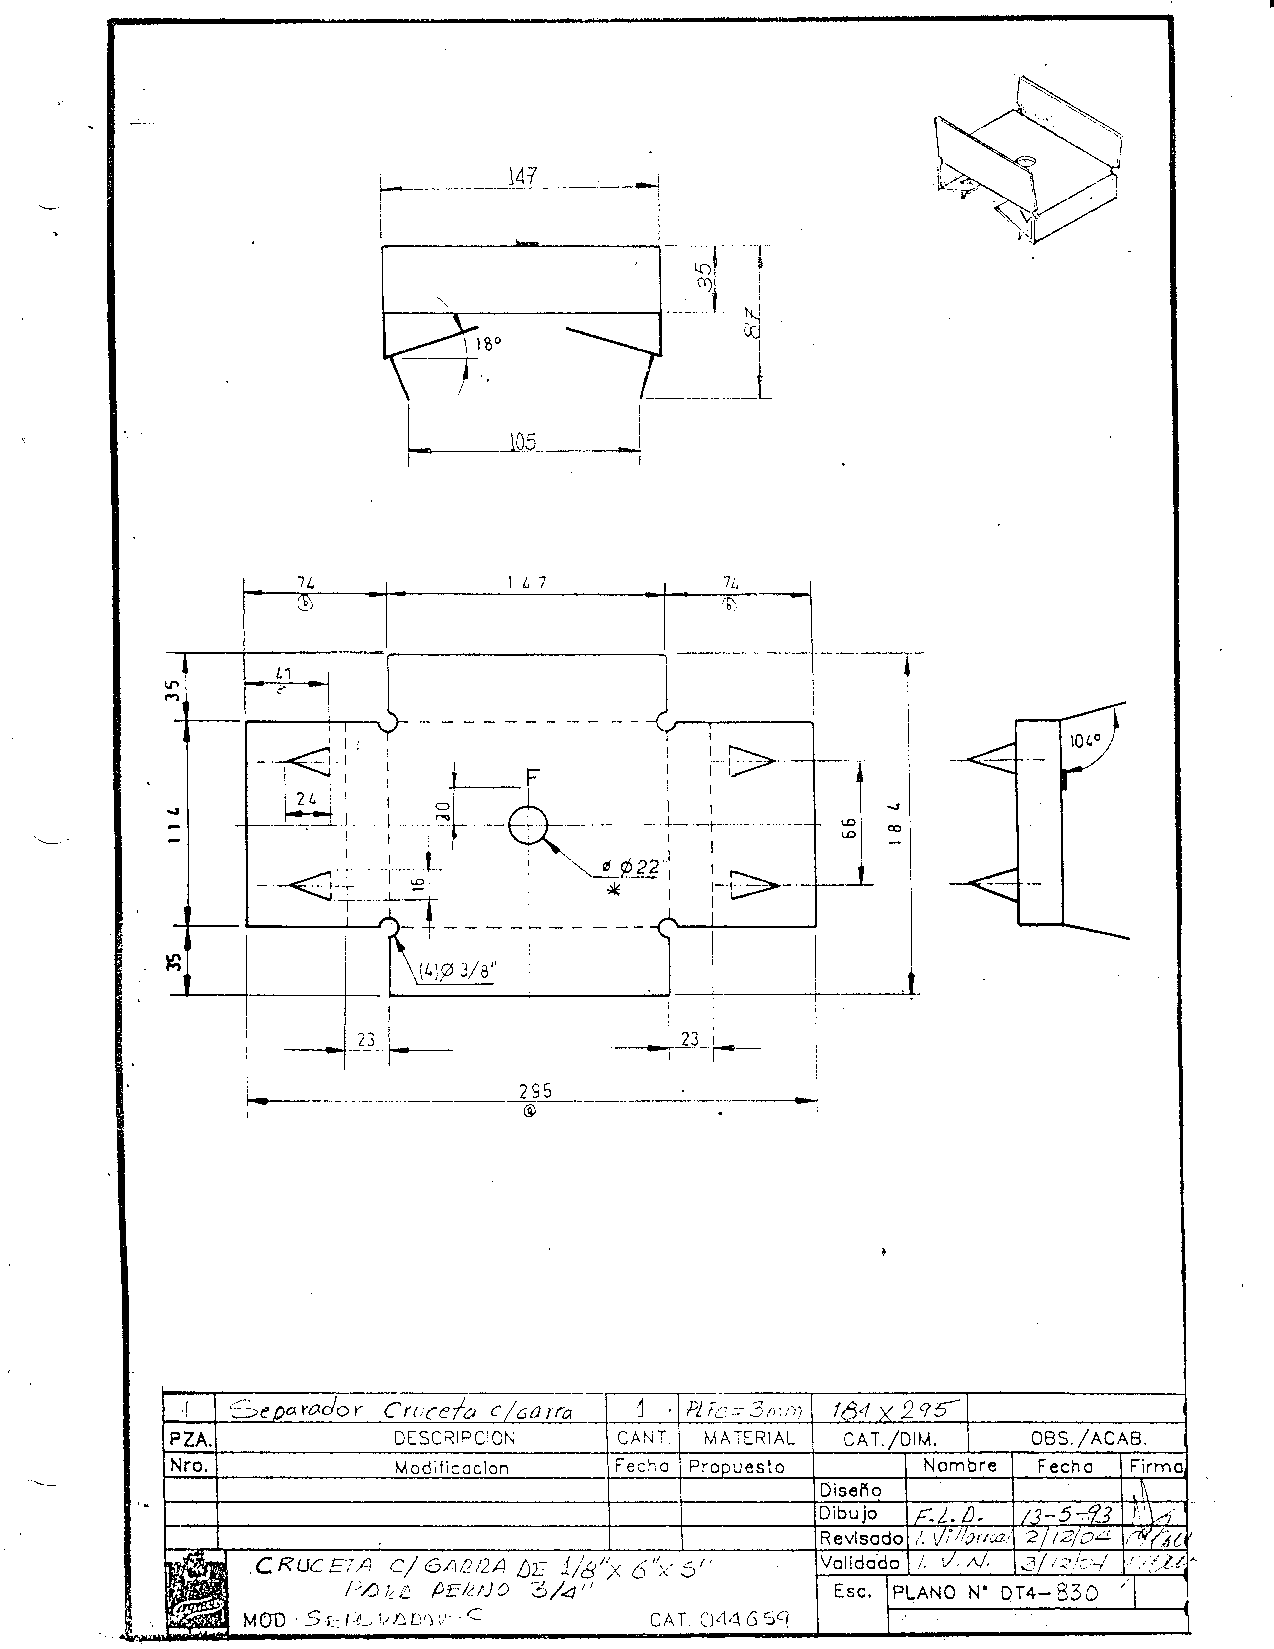 147
35
87
18°
105
74 147 74
b b
41
35
F
24
20
114
66
184
104°
ø Ø22
*
16
35
(4)Ø 3/8"
23 23
295
a
1 Separador Cruceta c/garra 1 PL Fe = 3mm 184 x 295
PZA. DESCRIPCION CANT. MATERIAL CAT./DIM. OBS./ACAB.
Nro. Modificacion Fecha Propuesto Nombre Fecha Firma
Diseño
Dibujo F.L.D. 13-5-93
Revisado 2/12/04
Validado I. V. N. 3/12/04
CRUCETA C/GARRA DE 1/8" x 6" x 5"
PARA PERNO 3/4"
Esc. PLANO N° DT4-830
MOD. CAT. 044659